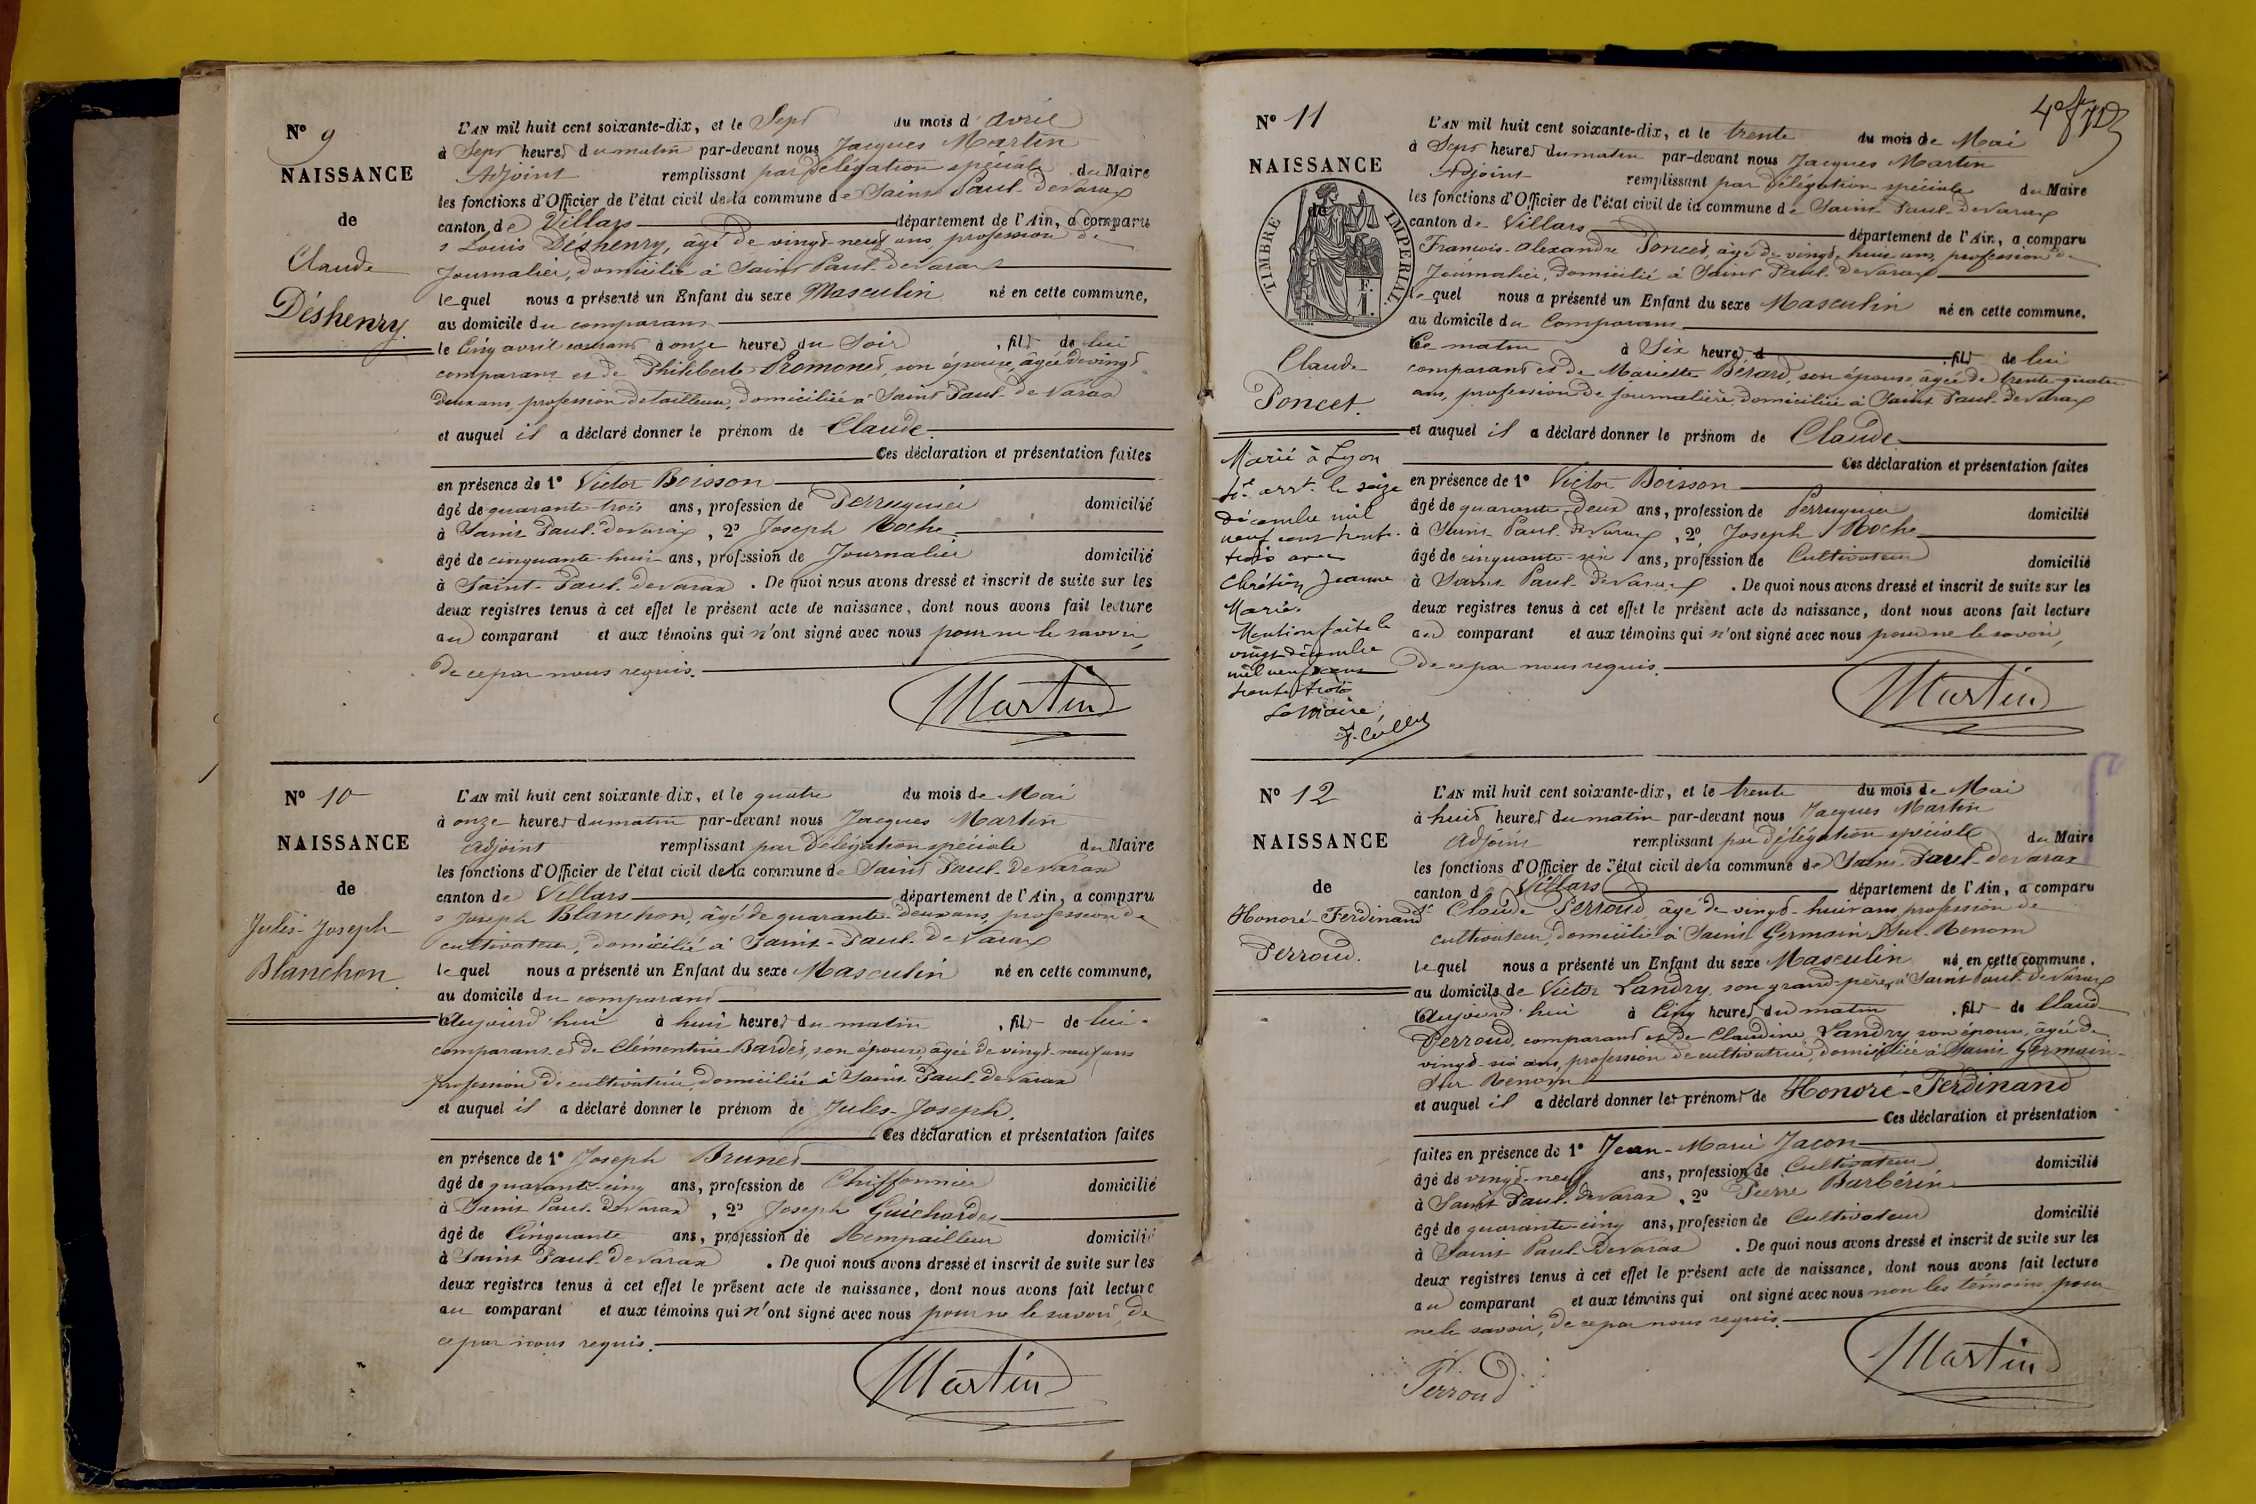 N° 9
NAISSANCE
de
Claude
Déshenry.
L'AN mil huit cent soixante-dix, et le Sept du mois d'avril
à Sept heures du matin par-devant nous Jacques Martin
Adjoint remplissant par délégation spéciale du Maire
les fonctions d'Officier de l'état civil de la commune de Saint Paul de Varax
canton de Villars département de l'Ain, a comparu
s Louis Déshenry, âgé de vingt-neuf ans, profession de
Journalier, domicilié à Saint Paul de Varax
lequel nous a présenté un Enfant du sexe Masculin né en cette commune,
au domicile du comparant
le Cinq avril courant à onze heures du Soir, fils de lui
comparant et de Philiberte Promonet, son épouse, âgée de vingt
deux ans, profession de tailleuse, domiciliée à Saint Paul de Varax
et auquel il a déclaré donner le prénom de Claude.
Ces déclaration et présentation faites
en présence de 1° Victor Boisson
âgé de quarante-trois ans, profession de Perruquier domicilié
à Saint Paul de Varax, 2° Joseph Roche
âgé de cinquante-huit ans, profession de Journalier domicilié
à Saint-Paul de Varax. De quoi nous avons dressé et inscrit de suite sur les
deux registres tenus à cet effet le présent acte de naissance, dont nous avons fait lecture
au comparant et aux témoins qui n'ont signé avec nous pour ne le savoir,
de ce par nous requis.
Martin
N° 10
NAISSANCE
de
Jules-Joseph
Blanchon.
L'AN mil huit cent soixante-dix, et le quatre du mois de Mai
à onze heures du matin par-devant nous Jacques Martin
Adjoint remplissant par délégation spéciale du Maire
les fonctions d'Officier de l'état civil de la commune de Saint Paul de Varax
canton de Villars département de l'Ain, a comparu
s Joseph Blanchon, âgé de quarante-deux ans, profession de
cultivateur, domicilié à Saint-Paul de Varax
lequel nous a présenté un Enfant du sexe Masculin né en cette commune,
au domicile du comparant
Aujourd'hui à huit heures du matin, fils de lui
comparant et de Clémentine Bardet, son épouse, âgée de vingt-neuf ans
profession de cultivatrice, domiciliée à Saint Paul de Varax
et auquel il a déclaré donner le prénom de Jules-Joseph.
Ces déclaration et présentation faites
en présence de 1° Joseph Brunet
âgé de quarante-cinq ans, profession de Chiffonnier domicilié
à Saint Paul de Varax, 2° Joseph Guichardet
âgé de Cinquante ans, profession de Rempailleur domicilié
à Saint Paul de Varax. De quoi nous avons dressé et inscrit de suite sur les
deux registres tenus à cet effet le présent acte de naissance, dont nous avons fait lecture
au comparant et aux témoins qui n'ont signé avec nous pour ne le savoir, de
ce par nous requis.
Martin
N° 11
NAISSANCE
de
TIMBRE IMPERIAL.
F.
1.
Claude
Poncet.
Marié à Lyon
arrt. le seize
décembre mil
neuf cent trente-
trois avec
Chrétien Jeanne
Marie.
Mention faite le
vingt décembre
mil neuf cent
trente trois
Le Maire,
L'AN mil huit cent soixante-dix, et le trente du mois de Mai
à Sept heures du matin par-devant nous Jacques Martin
Adjoint remplissant par délégation spéciale du Maire
les fonctions d'Officier de l'état civil de la commune de Saint Paul de Varax
canton de Villars département de l'Ain, a comparu
François-Alexandre Poncet, âgé de vingt-huit ans, profession de
Journalier, domicilié à Saint Paul de Varax
lequel nous a présenté un Enfant du sexe Masculin né en cette commune,
au domicile du Comparant
Ce matin à Six heures, fils de lui
comparant et de Mariette Bérard, son épouse, âgée de trente-quatre
ans, profession de journalière, domiciliée à Saint Paul de Varax
et auquel il a déclaré donner le prénom de Claude
Ces déclaration et présentation faites
en présence de 1° Victor Boisson
âgé de quarante-deux ans, profession de Perruquier domicilié
à Saint Paul de Varax, 2° Joseph Roche
âgé de cinquante-six ans, profession de Cultivateur domicilié
à Saint Paul de Varax. De quoi nous avons dressé et inscrit de suite sur les
deux registres tenus à cet effet le présent acte de naissance, dont nous avons fait lecture
au comparant et aux témoins qui n'ont signé avec nous pour ne le savoir,
de ce par nous requis.
Martin
N° 12
NAISSANCE
de
Honoré-Ferdinand
Perroud.
L'AN mil huit cent soixante-dix, et le trente du mois de Mai
à huit heures du matin par-devant nous Jacques Martin
Adjoint remplissant par délégation spéciale du Maire
les fonctions d'Officier de l'état civil de la commune de Saint-Paul de Varax
canton de Villars département de l'Ain, a comparu
Claude Perroud, âgé de vingt-huit ans, profession de
cultivateur, domicilié à Saint Germain sur Renom
lequel nous a présenté un Enfant du sexe Masculin né en cette commune,
au domicile de Victor Landry, son grand-père, à Saint Paul de Varax
Aujourd'hui à Cinq heures du matin, fils de Claude
Perroud, comparant et de Claudine Landry, son épouse, âgée de
vingt-six ans, profession de cultivatrice, domiciliée à Saint Germain-
sur Renom
et auquel il a déclaré donner les prénoms de Honoré-Ferdinand
Ces déclaration et présentation
faites en présence de 1° Jean-Marie Jacon
âgé de vingt-neuf ans, profession de Cultivateur domicilié
à Saint Paul de Varax, 2° Pierre Barbérin
âgé de quarante-cinq ans, profession de Cultivateur domicilié
à Saint Paul de Varax. De quoi nous avons dressé et inscrit de suite sur les
deux registres tenus à cet effet le présent acte de naissance, dont nous avons fait lecture
au comparant et aux témoins qui ont signé avec nous non les témoins pour
ne le savoir, de ce par nous requis.
Perroud
Martin